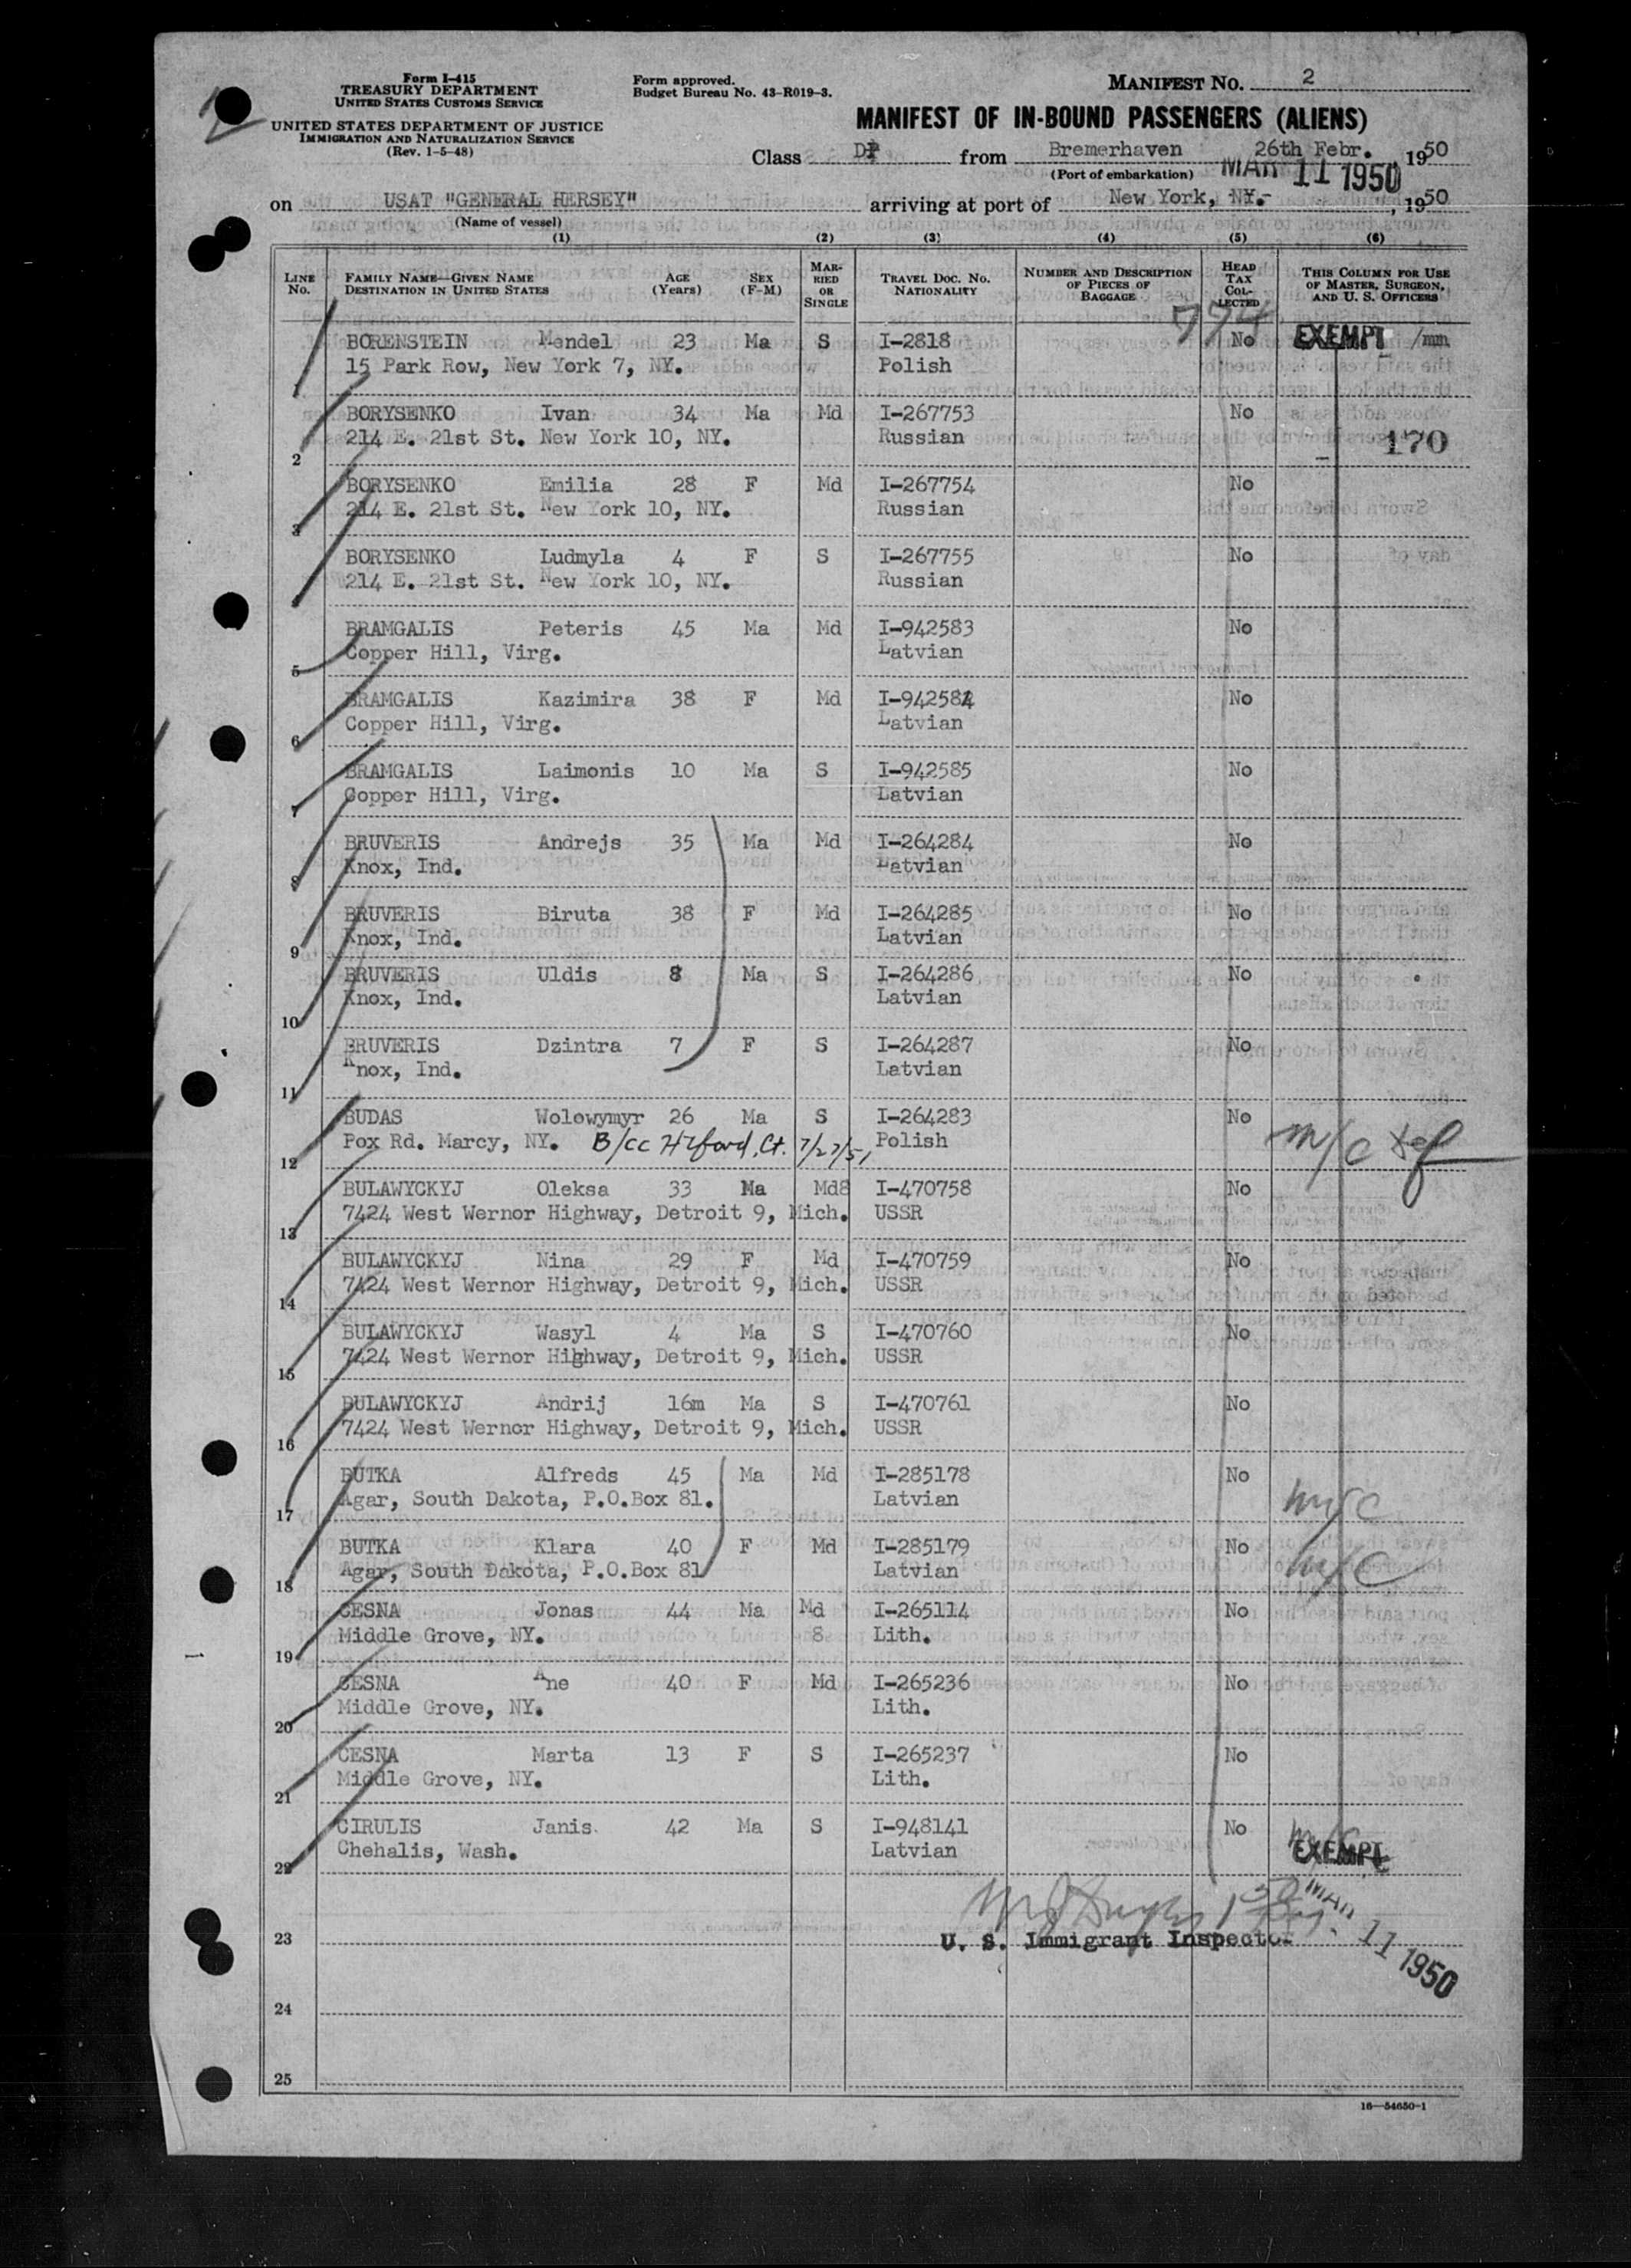 Form I-415
TREASURY DEPARTMENT
UNITED STATES CUSTOMS SERVICE
UNITED STATES DEPARTMENT OF JUSTICE
IMMIGRATION AND NATURALIZATION SERVICE
(Rev. 1-5-48)
Form approved.
Budget Bureau No. 43-R019-3.
MANIFEST NO. 2
MANIFEST OF IN-BOUND PASSENGERS (ALIENS)
Class DP from Bremerhaven 26th Febr. , 1950
(Port of embarkation) MAR 11 1950
on USAT "GENERAL HERSEY" arriving at port of New York, NY.- , 1950
(Name of vessel)
(1) (2) (3) (4) (5) (6)
LINE No. FAMILY NAME—GIVEN NAME DESTINATION IN UNITED STATES AGE (Years) SEX (F-M) MARRIED OR SINGLE TRAVEL DOC. NO. NATIONALITY NUMBER AND DESCRIPTION OF PIECES OF BAGGAGE HEAD TAX COLLECTED THIS COLUMN FOR USE OF MASTER, SURGEON, AND U. S. OFFICERS
794
BORENSTEIN Mendel 23 Ma S I-2818 No EXEMPT /mm
1 15 Park Row, New York 7, NY. Polish
BORYSENKO Ivan 34 Ma Md I-267753 No
2 214 E. 21st St. New York 10, NY. Russian 170
BORYSENKO Emilia 28 F Md I-267754 No
3 214 E. 21st St. New York 10, NY. Russian
BORYSENKO Ludmyla 4 F S I-267755 No
4 214 E. 21st St. New York 10, NY. Russian
BRAMGALIS Peteris 45 Ma Md I-942583 No
5 Copper Hill, Virg. Latvian
BRAMGALIS Kazimira 38 F Md I-942584 No
6 Copper Hill, Virg. Latvian
BRAMGALIS Laimonis 10 Ma S I-942585 No
7 Copper Hill, Virg. Latvian
BRUVERIS Andrejs 35 Ma Md I-264284 No
8 Knox, Ind. Latvian
BRUVERIS Biruta 38 F Md I-264285 No
9 Knox, Ind. Latvian
BRUVERIS Uldis 8 Ma S I-264286 No
10 Knox, Ind. Latvian
BRUVERIS Dzintra 7 F S I-264287 No
11 Knox, Ind. Latvian
BUDAS Wolowymyr 26 Ma S I-264283 No
12 Pox Rd. Marcy, NY. B/cc Htford, Ct. 7/27/51 Polish m/c
BULAWYCKYJ Oleksa 33 Ma Md8 I-470758 No
13 7424 West Wernor Highway, Detroit 9, Mich. USSR
BULAWYCKYJ Nina 29 F Md I-470759 No
14 7424 West Wernor Highway, Detroit 9, Mich. USSR
BULAWYCKYJ Wasyl 4 Ma S I-470760 No
15 7424 West Wernor Highway, Detroit 9, Mich. USSR
BULAWYCKYJ Andrij 16m Ma S I-470761 No
16 7424 West Wernor Highway, Detroit 9, Mich. USSR
BUTKA Alfreds 45 Ma Md I-285178 No
17 Agar, South Dakota, P.O.Box 81. Latvian m/c
BUTKA Klara 40 F Md I-285179 No
18 Agar, South Dakota, P.O.Box 81 Latvian m/c
CESNA Jonas 44 Ma Md I-265114 No
19 Middle Grove, NY. 8 Lith.
CESNA Ane 40 F Md I-265236 No
20 Middle Grove, NY. Lith.
CESNA Marta 13 F S I-265237 No
21 Middle Grove, NY. Lith.
CIRULIS Janis 42 Ma S I-948141 No
22 Chehalis, Wash. Latvian EXEMPT
23 U. S. Immigrant Inspector. MAR 11 1950
24
25
16—54650-1